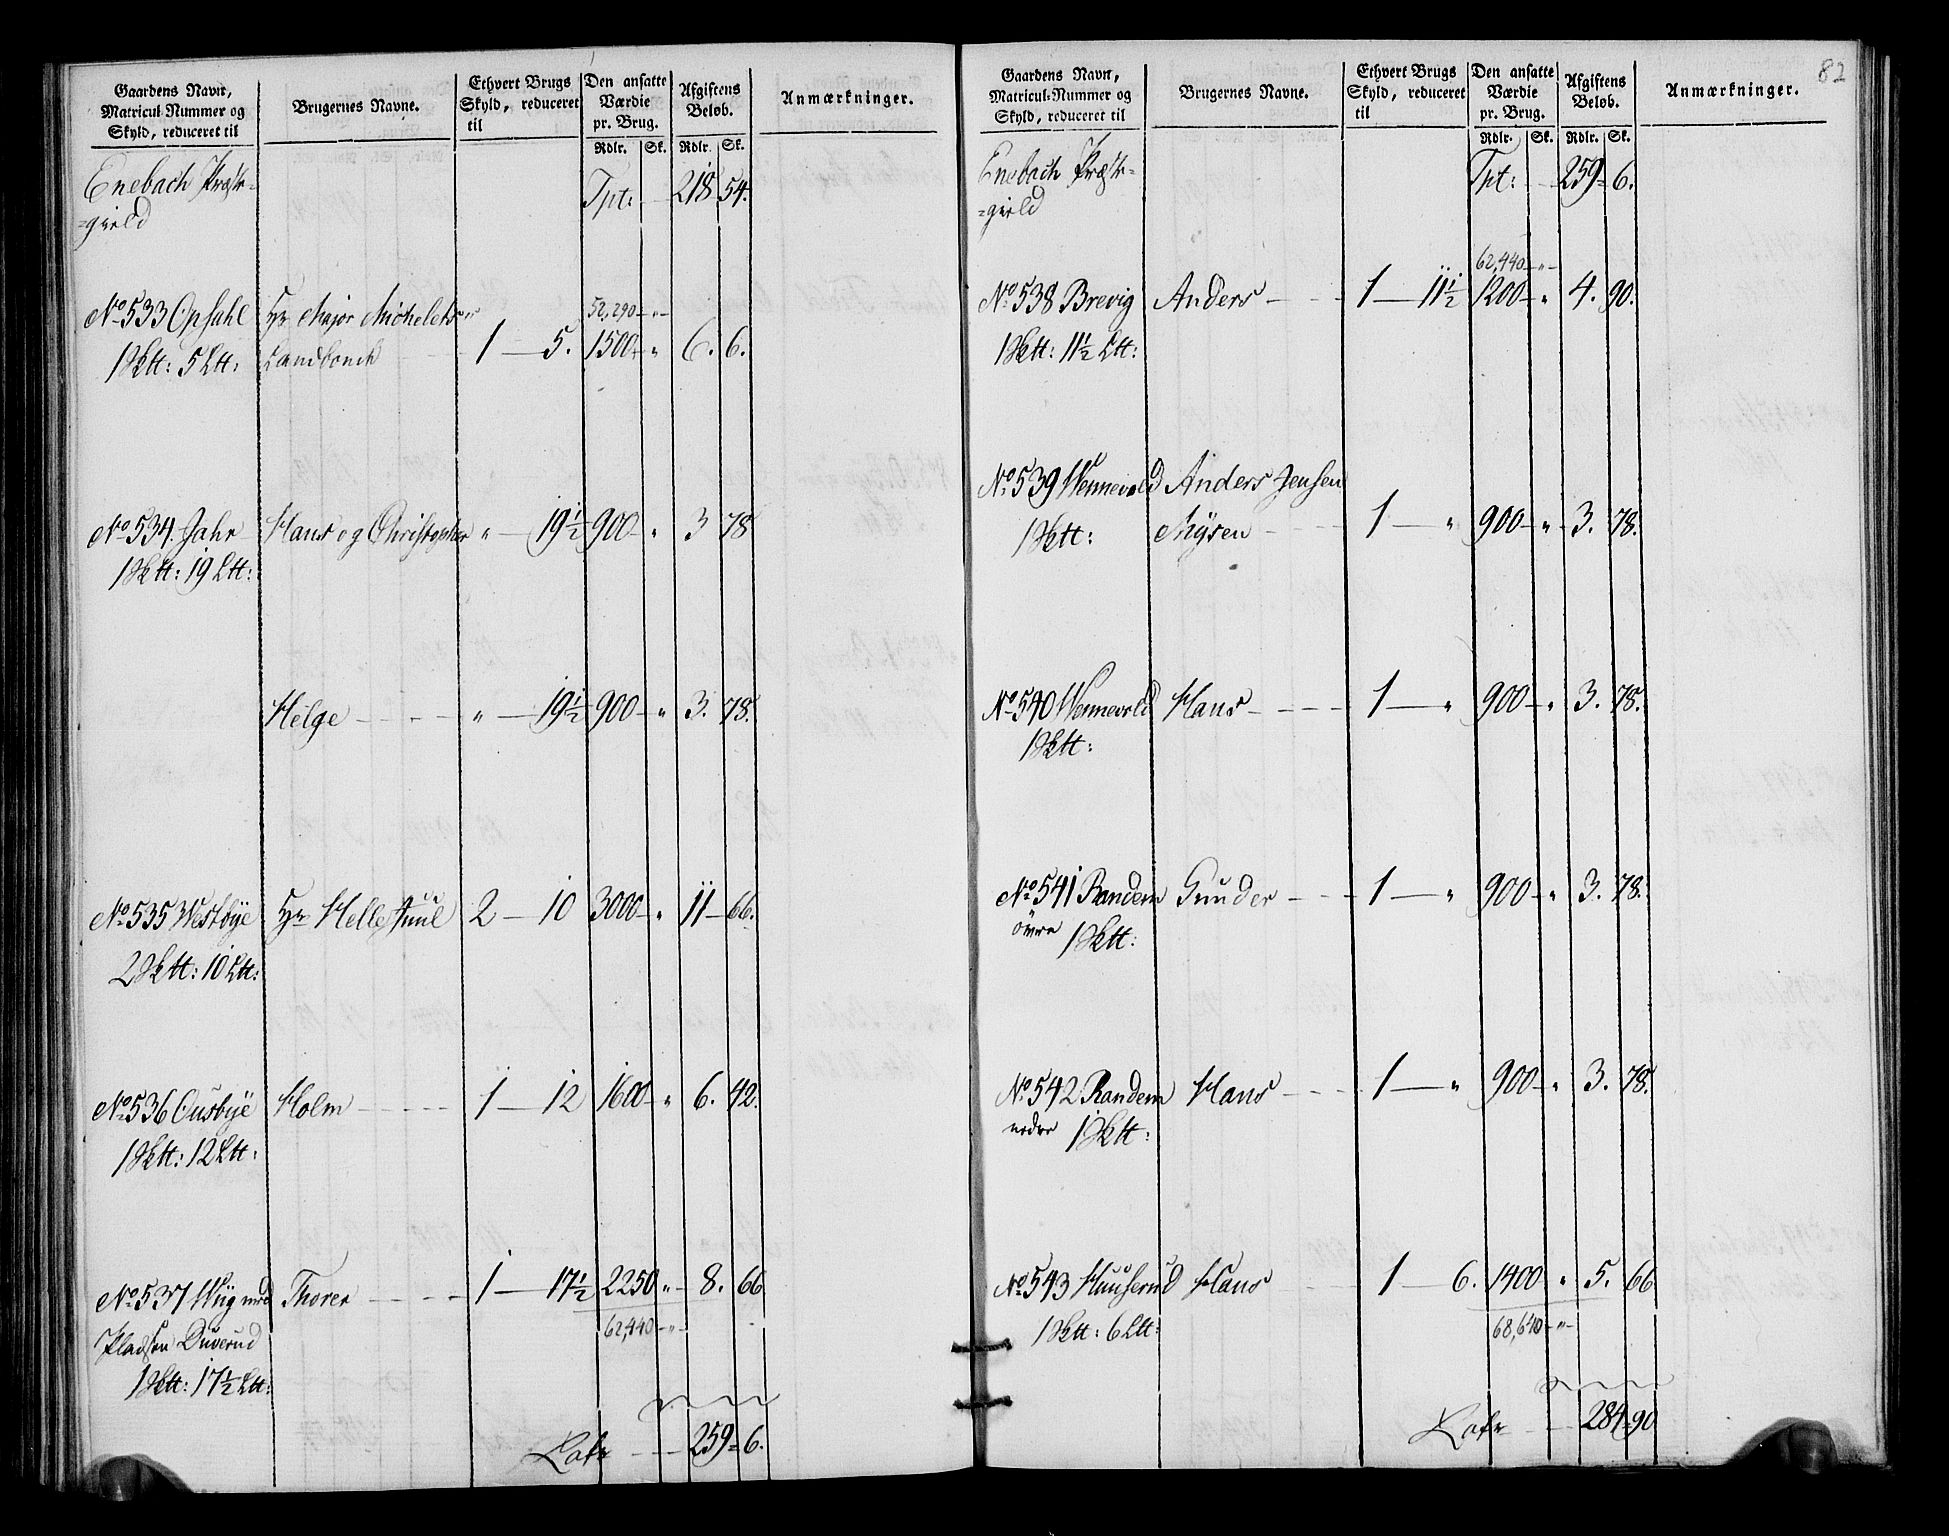 Gaardens Navn, Matricul-Nummer og Skyld, reduceret til | Brugernes Navne. | Ethvert Brugs Skyld, reduceret til | Den ansatte Værdie pr. Brug. Rdlr. Sk. | Afgiftens Beløb. Rdlr. Sk. | Anmærkninger.
Enebach Præste-
=gield Tpt: 218 54.
52,290 - " -
No 533 Opsahl Hr Major Michelets
1 Sktt: 5 Ltt: 1 — 5. 1500 - " 6. 6.
No 534. Jahr Hans og Christopher " — 19½ 900 - " 3 78
1 Sktt: 19 Ltt:
Helge - - - - " — 19½ 900 - " 3. 78.
No 535 Westbye Hr Helle Juul 2 — 10 3000 - " 11 - 66.
2 Sktt: 10 Ltt:
No 536 Ousbye Holm - - - - 1 — 12 1600 - " 6. 42.
1 Sktt: 12 Ltt:
No 537 Wiig med Thorer - - - - 1 — 17½ 2250 " - 8. 66
Pladsen Duverud 62,440 - " -
1 Sktt: 17½ Ltt:
Late - - - 259 = 6.
82
Gaardens Navn, Matricul-Nummer og Skyld, reduceret til | Brugernes Navne. | Ethvert Brugs Skyld, reduceret til | Den ansatte Værdie pr. Brug. Rdlr. Sk. | Afgiftens Beløb. Rdlr. Sk. | Anmærkninger.
Enebach Præste-
=gield Tpt: - - 259 = 6.
62,440 - " -
No 538 Brevig Anders - - - - 1 — 11½ 1200 - " 4. 90.
1 Sktt: 11½ Ltt:
No 539 Wennevold Anders Jensen
1 Sktt: Mysen - - - 1 — " 900 - " - 3. 78.
No 540 Wennevold Hans - - - - 1 — " 900 - " 3. 78.
1 Sktt:
No 541 Randem Gunder - - - 1 — " 900 - " 3. 78.
övre 1 Sktt:
No 542 Randem Hans - - - - 1 — " 900 - " 3. 78.
nedre 1 Sktt:
No 543 Huuserud Hans - - 1 — 6. 1400 " 5. 66
1 Sktt: 6 Ltt: 68,640 - " -
Late - - 284 = 90